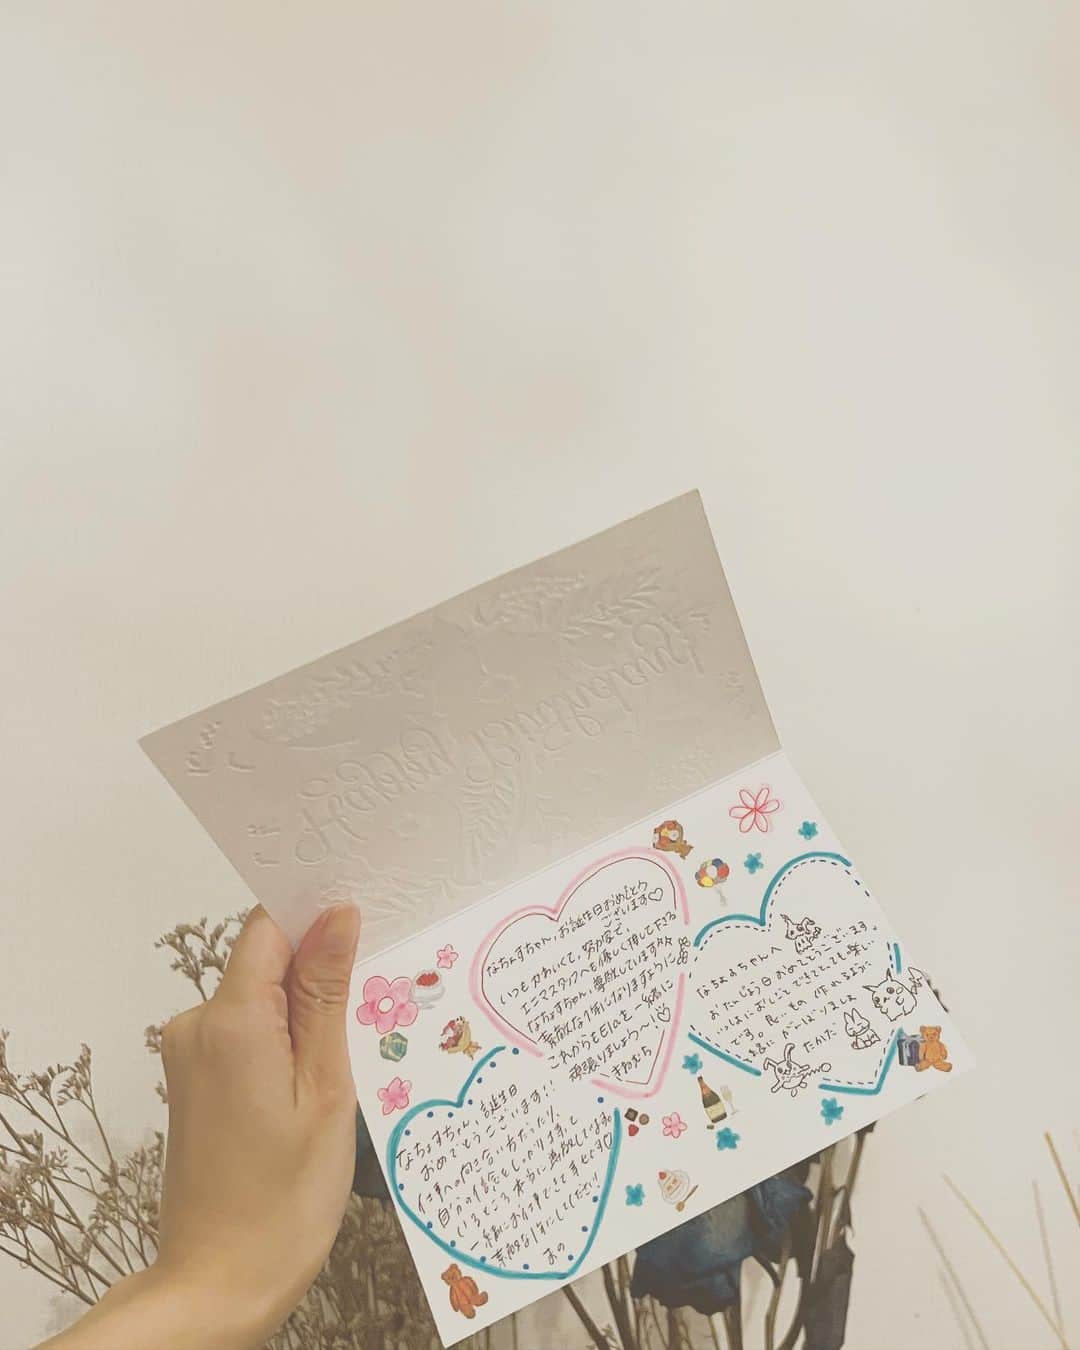 Happy Birthday!
なちょすちゃん、お誕生日おめでとう
ございます♡
いつもかわいくて、努力家で、
エニマスタッフへも優しく接してくださる
なちょすちゃん、尊敬しています
素敵な1年になりますように
これからもElaを一緒に
頑張りましょう〜!♡
きねむち
なちょすちゃん、誕生日
おめでとうございます!!
仕事への向き合い方だったり、
自分の信念をしっかり持って
いるところ本当に尊敬しています。
一緒にお仕事できて幸せです♡
素敵な1年にしてください!
あの
なちょすちゃんへ
おたんじょう日おめでとうございます。
いっしょにおしごとできてとっても楽しい
です。良いもの作れるように
一緒にがんばりましょ
たかだ